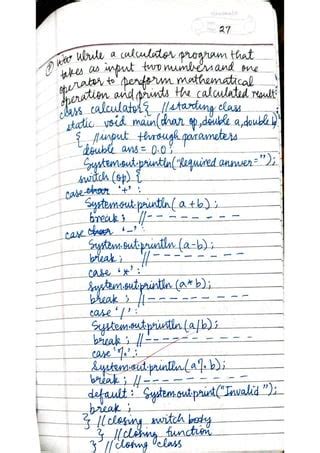 27
Write a calculator program that
takes as input two numbers and one
operator to perform mathematical
operation and prints the calculated result.
class calculator { //starting class
static void main(char op, double a, double b)
{ //input through parameters
double ans = 0.0;
System.out.println("Required answer=");
switch (op) {
case char '+' :
System.out.println(a+b);
break; //- - - - - - - -
case char '-' :
System.out.println(a-b);
break; //- - - - - - - -
case '*' :
System.out.println(a*b);
break; //- - - - - - - -
case '/' :
System.out.println(a/b);
break; //- - - - - - - -
case '%' :
System.out.println(a%b);
break; //- - - - - - - -
default : System.out.print("Invalid");
break;
} //closing switch body
} //closing function
} //closing class